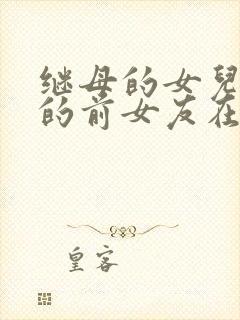 继母的女兒
的前女友在
皇客